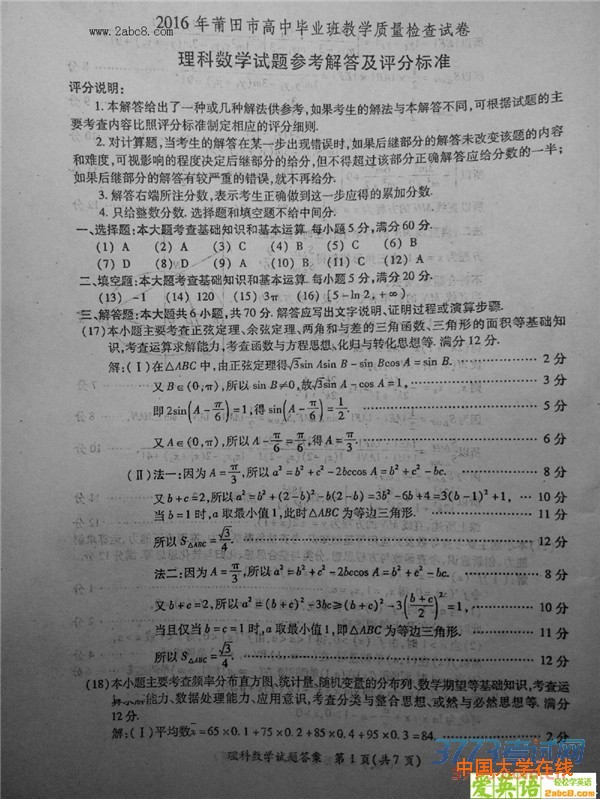 www.2abc8.com
2016年莆田市高中毕业班教学质量检查试卷
理科数学试题参考解答及评分标准
评分说明:
1. 本解答给出了一种或几种解法供参考,如果考生的解法与本解答不同,可根据试题的主
要考查内容比照评分标准制定相应的评分细则.
2. 对计算题,当考生的解答在某一步出现错误时,如果后继部分的解答未改变该题的内容
和难度,可视影响的程度决定后继部分的给分,但不得超过该部分正确解答应给分数的一半;
如果后继部分的解答有较严重的错误,就不再给分.
3. 解答右端所注分数,表示考生正确做到这一步应得的累加分数.
4. 只给整数分数. 选择题和填空题不给中间分.
一、选择题:本大题考查基础知识和基本运算. 每小题5分,满分60分.
(1) A (2) A (3) C (4) B (5) C (6) B
(7) D (8) D (9) A (10) B (11) C (12) A
二、填空题:本大题考查基础知识和基本运算. 每小题5分,满分20分.
(13) -1 (14) 120 (15) 3π (16) [5-ln 2,+∞)
三、解答题:本大题共6小题,共70分. 解答应写出文字说明、证明过程或演算步骤.
(17)本小题主要考查正弦定理、余弦定理、两角和与差的三角函数、三角形的面积等基础知
识,考查运算求解能力,考查函数与方程思想、化归与转化思想等. 满分12分.
解:(Ⅰ)在△ABC中,由正弦定理得√3sin Asin B-sin Bcos A=sin B. 2分
又B∈(0,π),所以sin B≠0,故√3sin A-cos A=1, 3分
即2sin(A-π/6)=1,得sin(A-π/6)=1/2. 5分
又A∈(0,π),所以A-π/6=π/6,得A=π/3. 6分
(Ⅱ)法一:因为A=π/3,所以a²=b²+c²-2bccos A=b²+c²-bc. 8分
又b+c=2,所以a²=b²+(2-b)²-b(2-b)=3b²-6b+4=3(b-1)²+1, … 10分
当b=1时,a取最小值1,此时△ABC为等边三角形. 11分
所以S△ABC=√3/4. 12分
法二:因为A=π/3,所以a²=b²+c²-2bccos A=b²+c²-bc. 8分
又b+c=2,所以a²=(b+c)²-3bc≥(b+c)²-3((b+c)/2)²=1, 10分
当且仅当b=c=1时,a取最小值1,即△ABC为等边三角形. 11分
所以S△ABC=√3/4. 12分
(18)本小题主要考查频率分布直方图、统计量、随机变量的分布列、数学期望等基础知识,考查运
能力、数据处理能力、应用意识,考查分类与整合思想、或然与必然思想等. 满分
12分.
解:(Ⅰ)平均数x̄=65×0.1+75×0.2+85×0.4+95×0.3=84. 2分
理科数学试题答案 第1页(共7页)
3773考试网
中国大学在线
爱英语吧 轻松学英语
2abc8.com